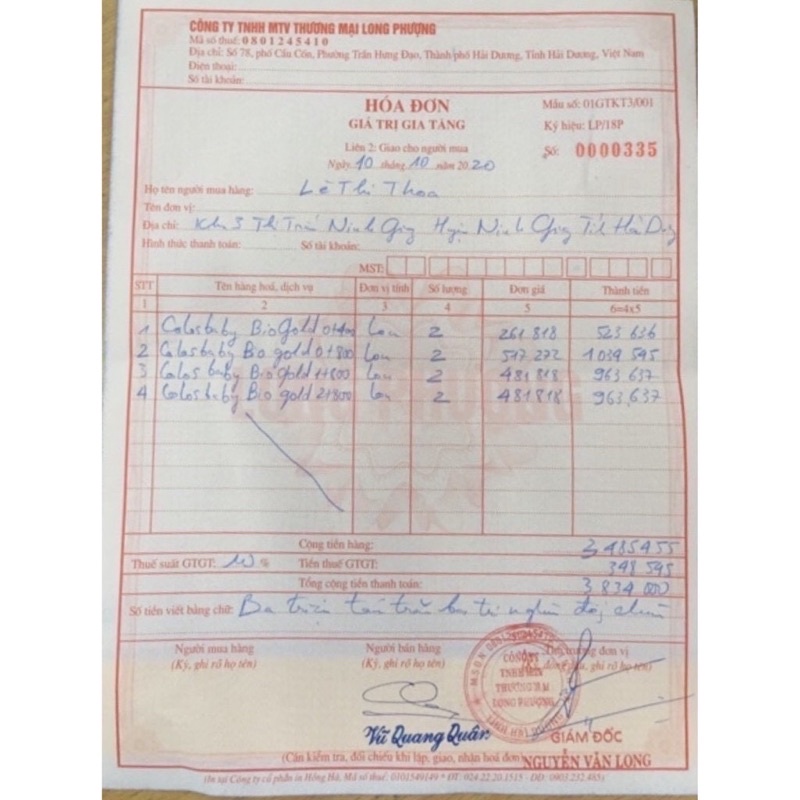 CÔNG TY TNHH MTV THƯƠNG MẠI LONG PHƯỢNG
Mã số thuế: 0801245410
Địa chỉ: Số 78, phố Cầu Cốn, Phường Trần Hưng Đạo, Thành phố Hải Dương, Tỉnh Hải Dương, Việt Nam
Điện thoại:
Số tài khoản:
HÓA ĐƠN
GIÁ TRỊ GIA TĂNG
Liên 2: Giao cho người mua
Ngày 10 tháng 10 năm 2020
Mẫu số: 01GTKT3/001
Ký hiệu: LP/18P
Số: 0000335
Họ tên người mua hàng: Lê Thị Thoa
Tên đơn vị:
Địa chỉ: Khu 3 Thị Trấn Ninh Giang Huyện Ninh Giang Tỉnh Hải Dương
Hình thức thanh toán: Số tài khoản:
MST:
STT Tên hàng hoá, dịch vụ Đơn vị tính Số lượng Đơn giá Thành tiền
1 2 3 4 5 6=4x5
1 Colosbaby Bio Gold 0+400 Lon 2 261 818 523 636
2 Colosbaby Bio gold 0+800 Lon 2 517 272 1 034 545
3 Colosbaby Bio gold 1+800 Lon 2 481 818 963,637
4 Colosbaby Bio gold 2+800 Lon 2 481 818 963,637
Cộng tiền hàng: 3 485 455
Thuế suất GTGT: 10 % Tiền thuế GTGT: 348 545
Tổng cộng tiền thanh toán: 3 834 000
Số tiền viết bằng chữ: Ba triệu tám trăm ba tư nghìn đồng chẵn
Người mua hàng Người bán hàng Thủ trưởng đơn vị
(Ký, ghi rõ họ tên) (Ký, ghi rõ họ tên) đóng dấu, ghi rõ họ tên)
M.S.D.N: 0801245410
CÔNG TY
TNHH MTV
THƯƠNG MẠI
LONG PHƯỢNG
Vũ Quang Quân
GIÁM ĐỐC
NGUYỄN VĂN LONG
(Cần kiểm tra, đối chiếu khi lập, giao, nhận hoá đơn)
(In tại Công ty cổ phần in Hồng Hà, Mã số thuế: 0101549149 * ĐT: 024.22.20.1515 - DĐ: 0903.232.485)